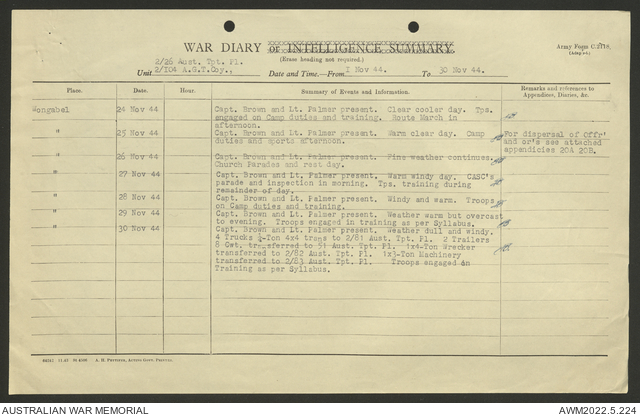 WAR DIARY or INTELLIGENCE SUMMARY.
(Erase heading not required.)
Army Form C.2118.
2/26 Aust. Tpt. Pl.
Unit 2/104 A.G.T.Coy., Date and Time.—From 1 Nov 44. To 30 Nov 44.
Place. Date. Hour. Summary of Events and Information. Remarks and references to Appendices, Diaries, &c.
Wongabel 24 Nov 44 Capt. Brown and Lt. Palmer present. Clear cooler day. Tps.
engaged on Camp duties and training. Route March in
afternoon.
" 25 Nov 44 Capt. Brown and Lt. Palmer present. Warm clear day. Camp
duties and sports afternoon.
For dispersal of Offr'
and or's see attached
appendicies 20A 20B.
" 26 Nov 44 Capt. Brown and Lt. Palmer present. Fine weather continues.
Church Parades and rest day.
" 27 Nov 44 Capt. Brown and Lt. Palmer present. Warm windy day. CASC's
parade and inspection in morning. Tps. training during
remainder of day.
" 28 Nov 44 Capt. Brown and Lt. Palmer present. Windy and warm. Troops
on Camp duties and training.
" 29 Nov 44 Capt. Brown and Lt. Palmer present. Weather warm but overcast
to evening. Troops engaged in training as per Syllabus.
" 30 Nov 44 Capt. Brown and Lt. Palmer present. Weather dull and windy.
4 Trucks -Ton 4x4 trans to 2/81 Aust. Tpt. Pl. 2 Trailers
8 Cwt. transferred to 51 Aust. Tpt. Pl. 1x4-Ton Wrecker
transferred to 2/82 Aust. Tpt. Pl. 1x3-Ton Machinery
transferred to 2/83 Aust. Tpt. Pl. Troops engaged in
Training as per Syllabus.
AUSTRALIAN WAR MEMORIAL
AWM2022.5.224